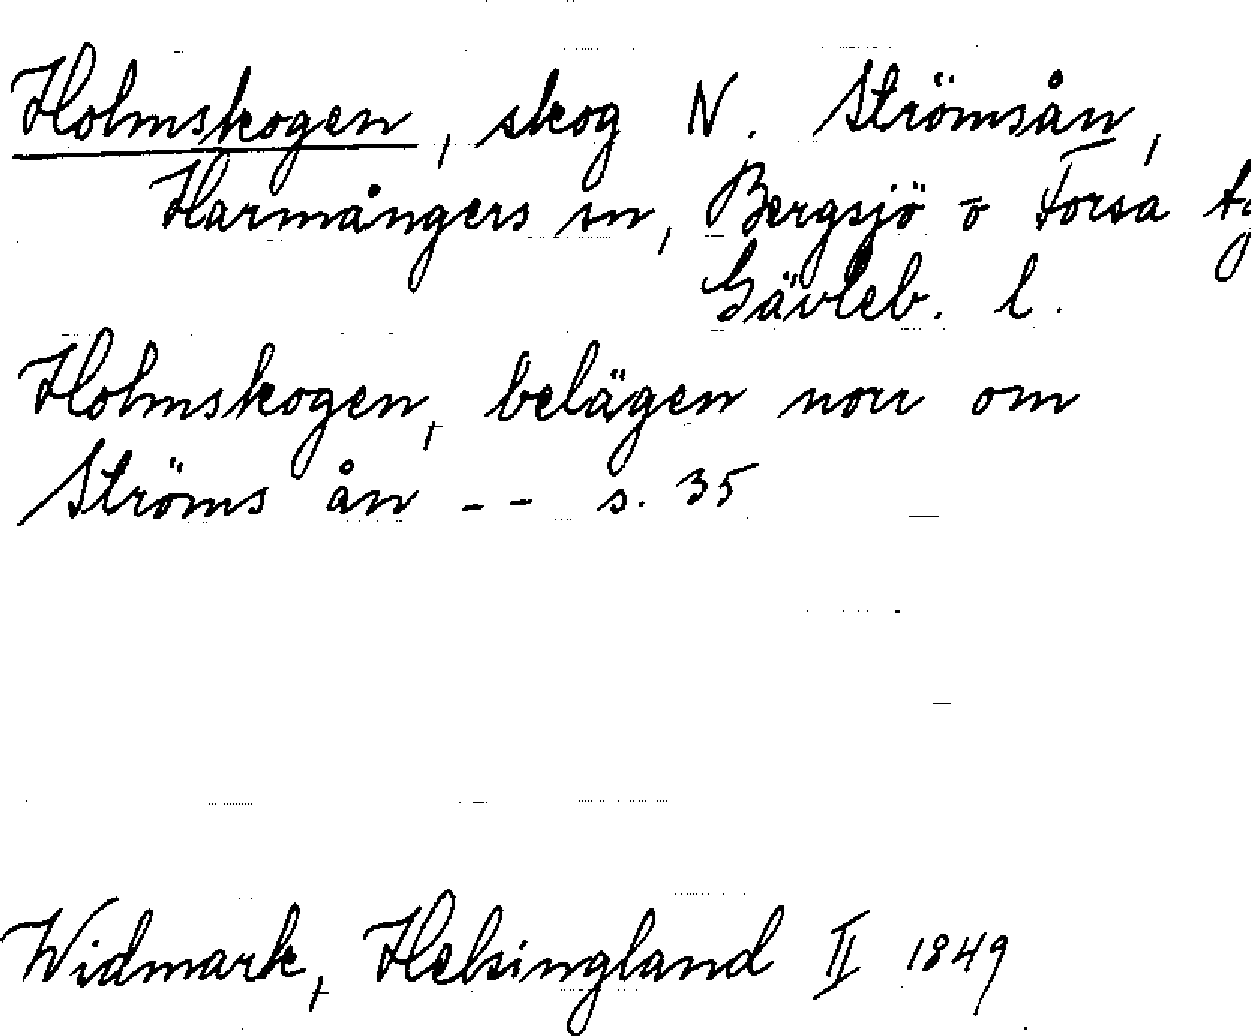 Holmskogen, skog N. Strömsån,
Harmångers sn, Bergsjö o Forsa tg
Gävleb. l.
Holmskogen, belägen norr om
Ströms ån -- s. 35
Widmark, Helsingland II 1849